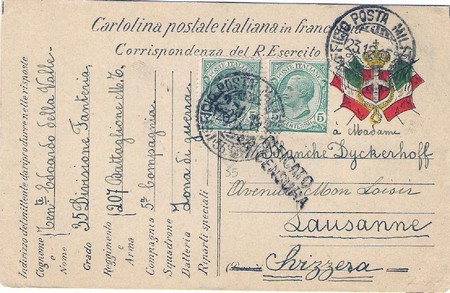 Cartolina postale italiana in franc
Corrispondenza del R. Esercito
UFFICIO POSTA MILIT
Indirizzo del mittente da riprodurre nelle risposte
Cognome Ten. Edoardo della Valle
e
Nome
Grado 35 Divisione Fanteria
Reggimento 207 Battaglione M.T.
e
Arma
Compagnia 5ª Compagnia
Squadrone
Batteria Zona di guerra
Riparti speciali
POSTE ITALIANE
5
VERIFICATO
CENSURA
35
à Madame
Blanche Dyckerhoff
Avenue Mon Loisir
Lausanne
Svizzera